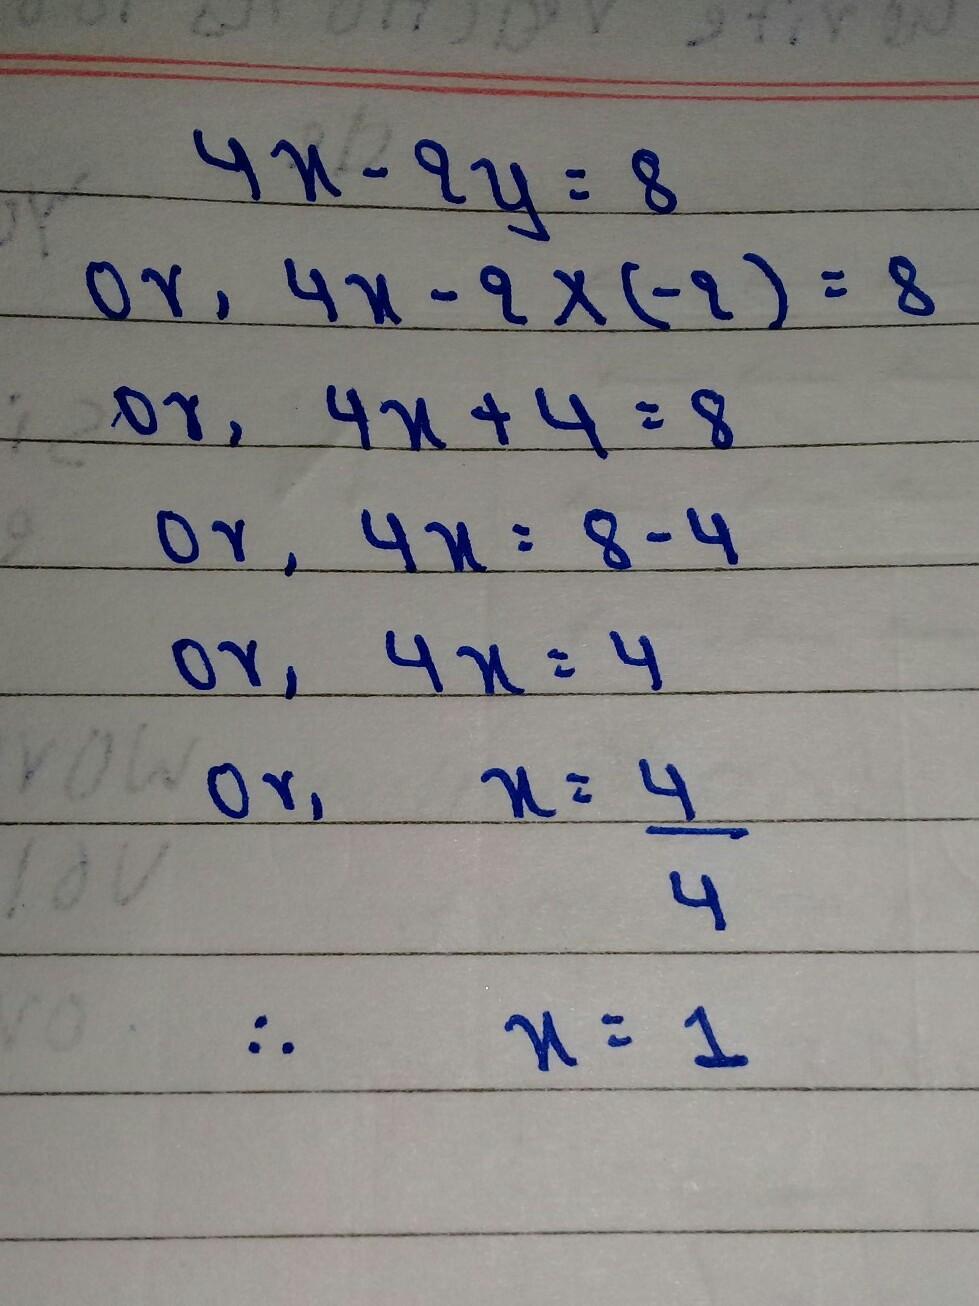 4x - 2y = 8
or, 4x - 2 × (-2) = 8
or, 4x + 4 = 8
or, 4x = 8 - 4
or, 4x = 4
or, x = 4/4
∴ x = 1